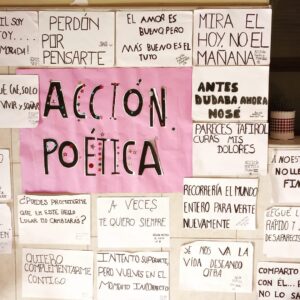 SOY
TOY...
PERDÓN
POR
PENSARTE
EL AMOR ES
BUENO, PERO
MÁS BUENO ES EL
TUYO
MIRA EL
HOY, NO EL
MAÑANA
SOLO
VIVIR Y SOÑAR
ACCIÓN
POÉTICA
ANTES
DUDABA AHORA
NOSÉ
PARECES TAFIROL
CURAS MIS
DOLORES
¿PUEDES PROMETERME
QUE EN ESTE BELLO
LUGAR NO CAMBIARÁS?
A VECES
TE QUIERO SIEMPRE
RECORRERÍA EL MUNDO
ENTERO PARA VERTE
NUEVAMENTE
NO LLE
QUIERO
COMPLEMENTARME
CONTIGO
INTENTO SUPERARTE,
PERO VUELVES EN EL
MOMENTO INCORRECTO
SE NOS VA LA
VIDA DESEANDO
OTRA
RÁPIDO Y
DESAPARECI
COMPARTO
CON EL...
NO LO